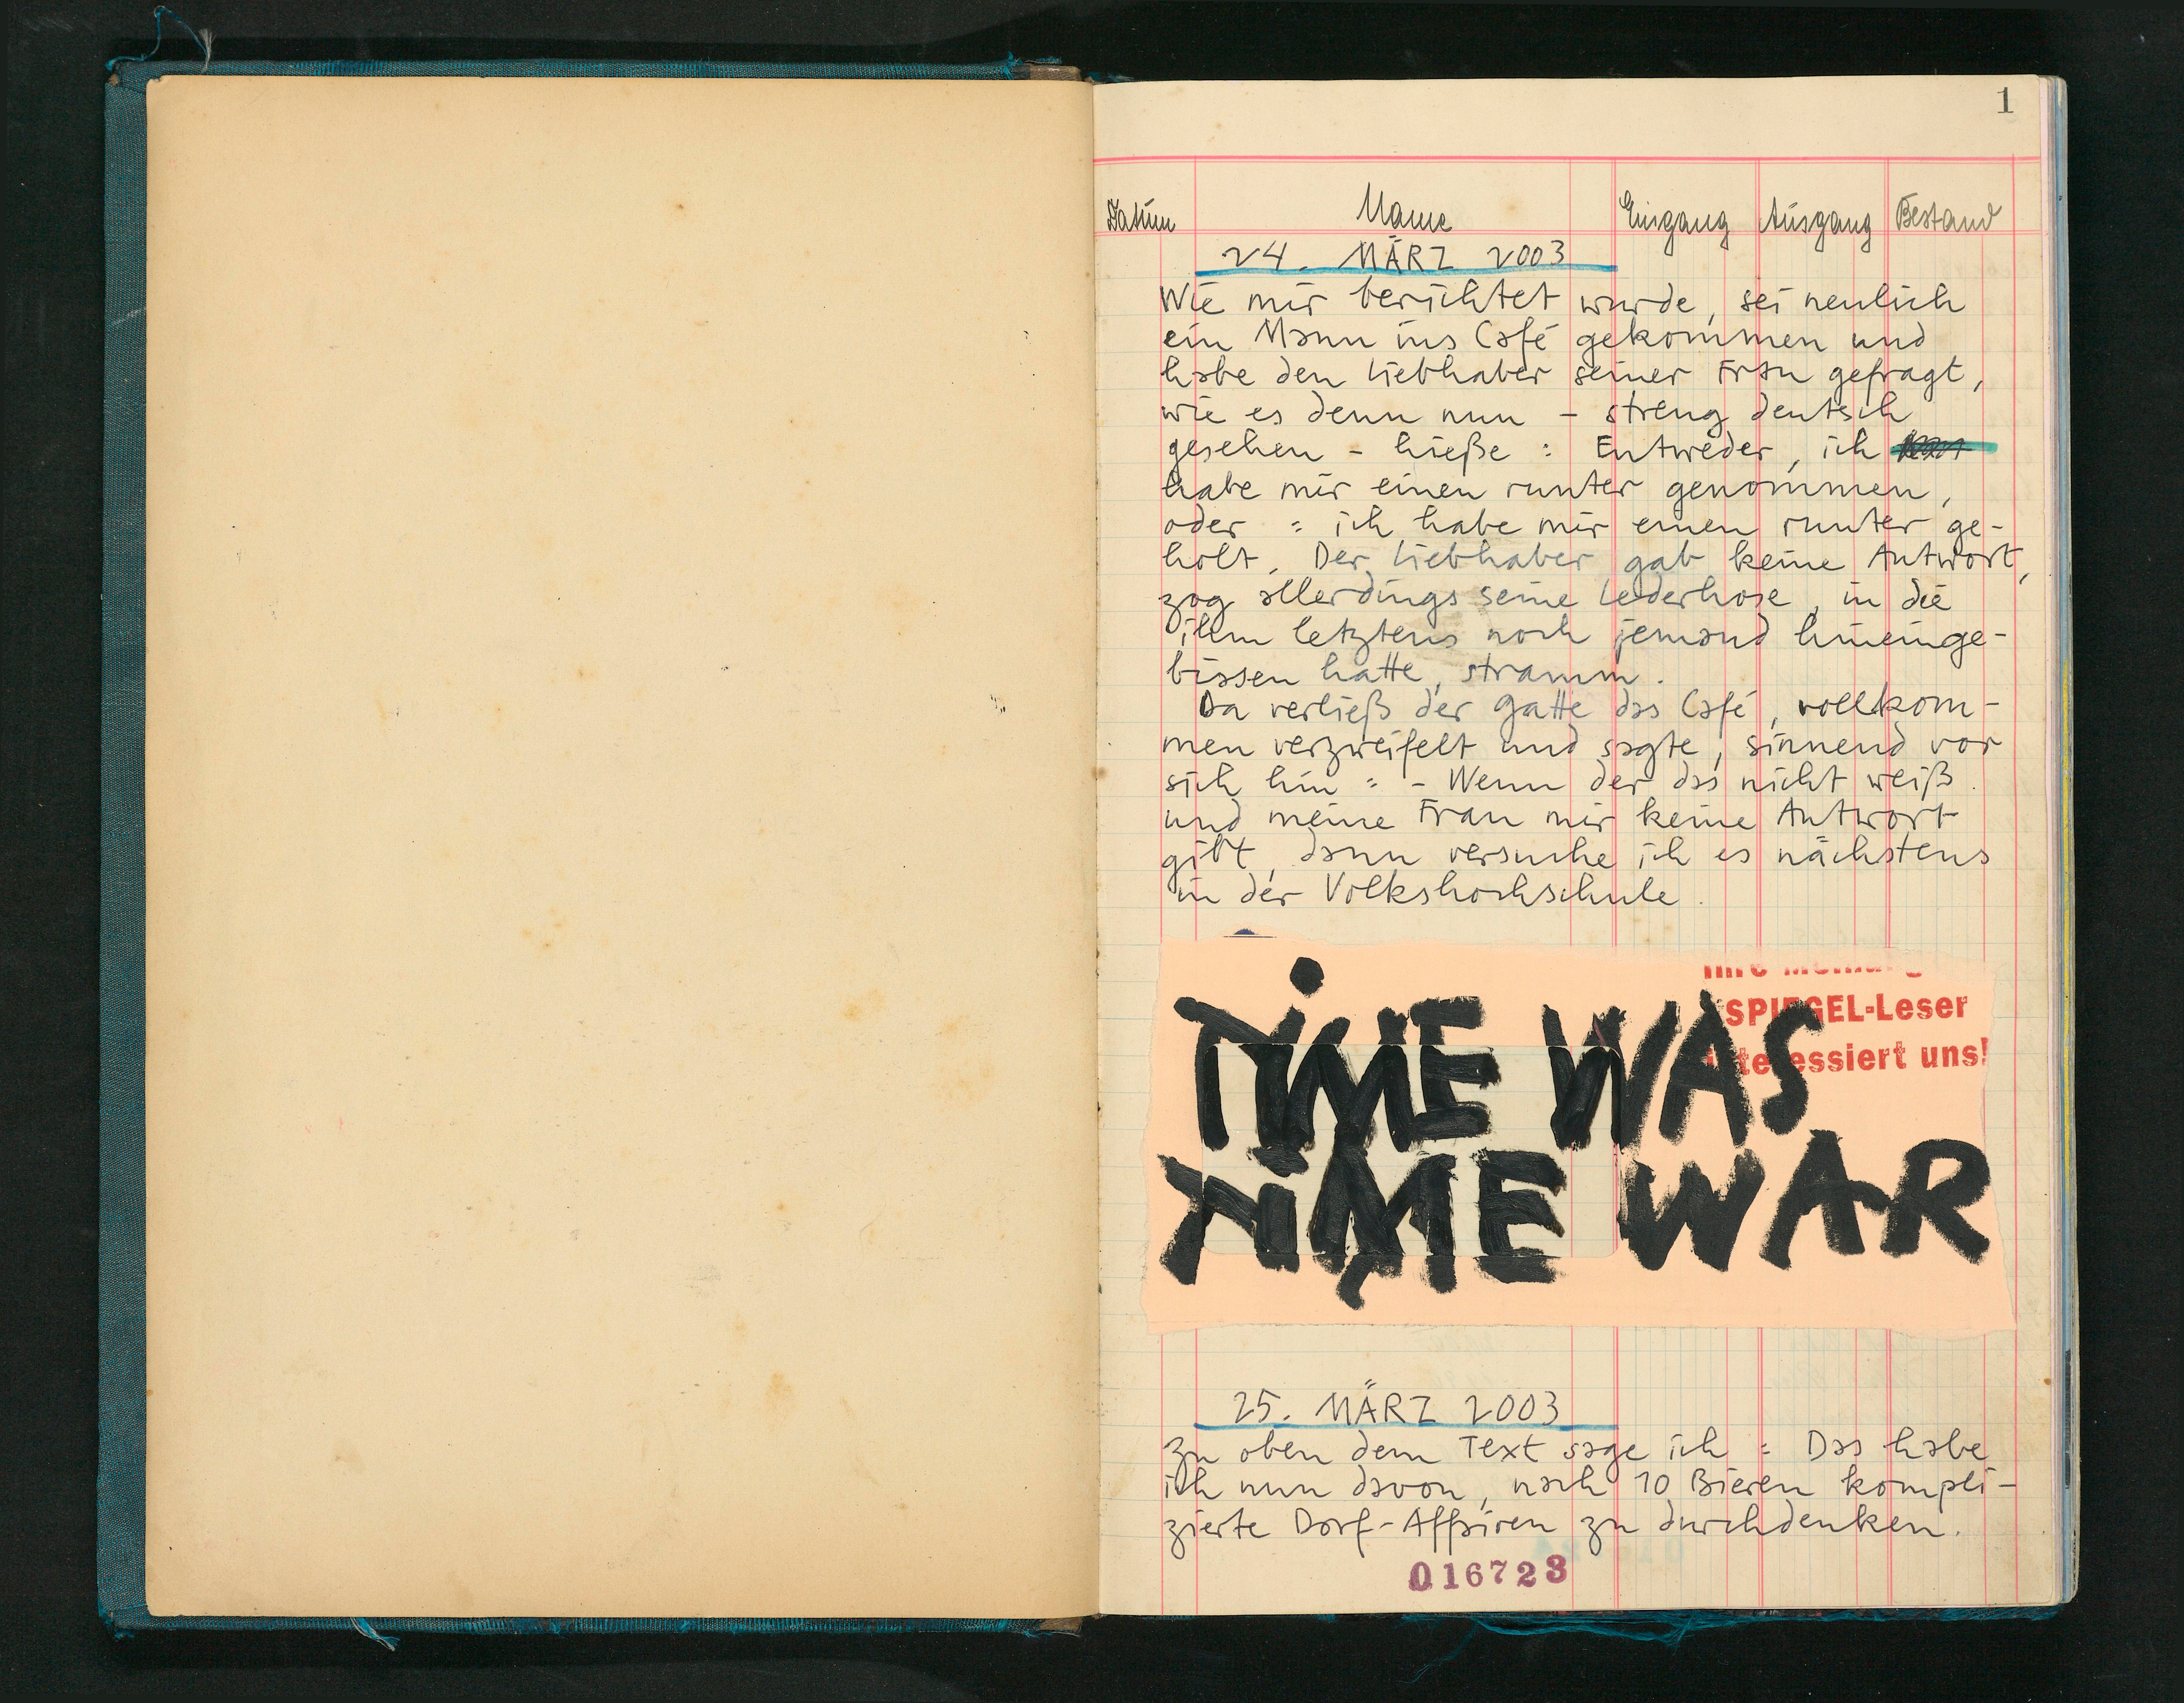 1
Datum Name Eingang Ausgang Bestand
24. MÄRZ 2003
Wie mir berichtet wurde, sei neulich
ein Mann ins Café gekommen und
habe den Liebhaber seiner Frau gefragt,
wie es denn nun - streng deutsch
gesehen - hieße: Entweder, ich
habe mir einen runter genommen,
oder: ich habe mir einen runter ge-
holt. Der Liebhaber gab keine Antwort,
zog allerdings seine Lederhose, in die
ihm letztens noch jemand hineinge-
bissen hatte, stramm.
Da verließ der Gatte das Café, vollkom-
men verzweifelt und sagte, sinnend vor
sich hin: - Wenn der das nicht weiß
und meine Frau mir keine Antwort
gibt, dann versuche ich es nächstens
in der Volkshochschule.
SPIEGEL-Leser
interessiert uns!
TiME WAS
TiME WAR
25. MÄRZ 2003
Zu oben dem Text sage ich: Das habe
ich nun davon, nach 10 Bieren kompli-
zierte Dorf-Affairen zu durchdenken.
016723